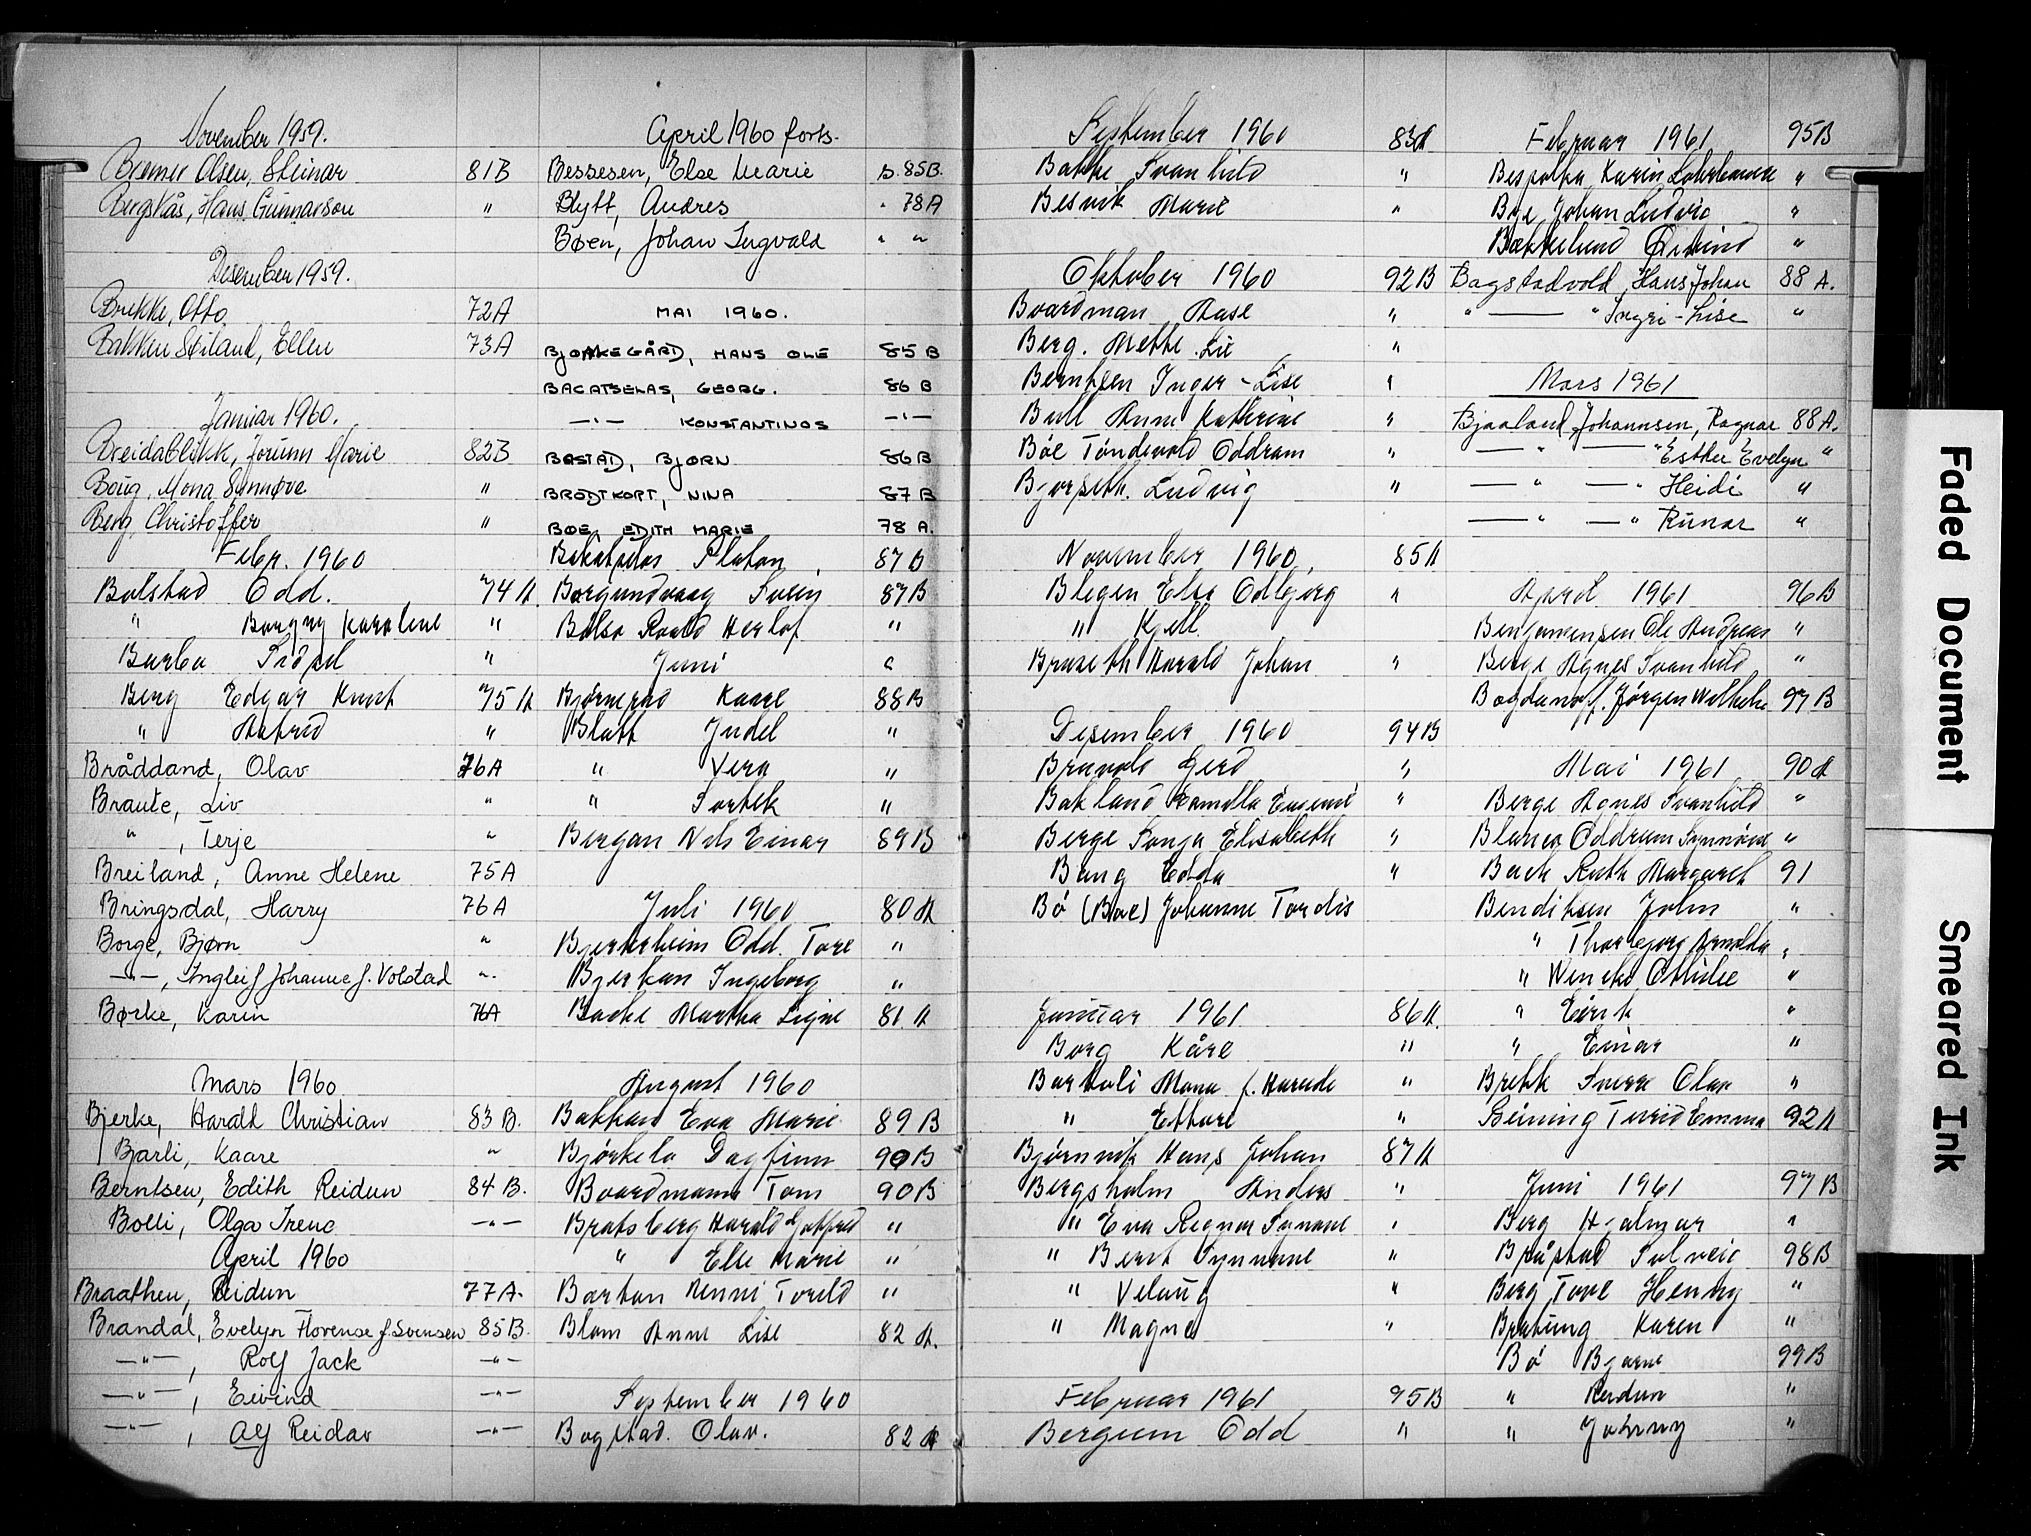 November 1959.
Bremer Olsen, Steinar 81B
Bergskås, Hans Gunnarson "
Desember 1959.
Brekke, Otto 72A
Bakken Søiland, Ellen 73A
Januar 1960.
Breidablikk, Jorunn Marie 82B
Boug, Mona Synnøve "
Berg, Christoffer "
Febr. 1960
Bolstad Odd. 74A.
" Borgny Karoline "
Barbo Sidsel "
Berg Edgar Knut 75A
" Astrid "
Bråddand, Olav 76A
Braute, Liv "
" , Terje "
Breiland, Anne Helene 75A
Bringsdal, Harry 76A
Borge, Bjørn "
—"—, Ingleif Johanne f. Volstad "
Børke, Karin 76A
Mars 1960
Bjerke, Harald Christian 83B.
Bjarli, Kaare "
Berntsen, Edith Reidun 84B.
Bolli, Olga Irene —"—
April 1960
Braathen, Reidun 77A.
Brandal, Evelyn Florense f. Svensen 85B.
—"—, Rolf Jack —"—
—"—, Eivind —"—
—"—, Alf Reidar —"—
April 1960 forts.
Bessesen, Else Marie s. 85B.
Blytt, Andres " 78A
Bøen, Johan Ingvald " "
MAI 1960.
BJORKEGÅRD, HANS OLE 85B
BACATSELAS, GEORG. 86B
—"— KONSTANTINOS —"—
BASTAD, BJØRN 86B
BRODTKORT, NINA 87B
BØE, EDITH MARIE 78A.
Platon 87B
Borgundvaag Svein 87B
Bålso Roald Herlof "
Juni "
Kaare 88B
Blatt Judel "
" Vera "
" "
Bergan Nils Einar 89B
Juli 1960 80A
Bjerkreim Odd Tore "
Bjerkan Ingeborg "
Bache Martha Signe 81A
August 1960
Bakkan Eva Marie 89B
Bjørkelo Dagfinn 90B
Boardmann Tom 90B
Bratsberg Harald "
" Else Marie "
Bartan Renni Torild "
Blom Anne Lise 82A.
September 1960
Bogstad. Olav. 82A
September 1960 83A
Bakke Svanhild "
Besvik Marie "
Oktober 1960 92B
Boardman Aase "
Berg. Mette Lie "
Berntsen Inger-Lise "
Bull Anne Kathrine "
Bøe Tøndevold Oddram "
Bjørseth. Ludvig "
November 1960 85A
Blegen Else Odbjørg "
" Kjell
Bruseth Harald Johan "
Desember 1960 94B
Bruvold Gerd "
Bakland Kamilla "
Berge Sonja Elisabeth "
Bang Edda "
Bø (Boe) Johanne Tordis
Januar 1961 86A.
Borg Kåre "
Bartoli Mona f. "
" Ettore "
Bjørnvik Hans Johan 87A
Bergsholm Anders "
" Eva Ragnar Synnøve "
" Berit Synnøve "
" Velaug "
" Magne "
Februar 1961 95B
Bergum Odd "
Februar 1961 95B
Bespalka Karin "
Bye Johan Ludvig "
Bakkelund Øivind "
Bagstadvold, Hans Johan 88A.
" — " Ingri-Lise "
Mars 1961
Bjaaland Johannsen, Ragnar 88A.
—"— —" Esther Evelyn "
—"— —" Heidi "
—"— —" Runar "
April 1961 96B
Benjaminsen Ole Andreas "
Berge Agnes Svanhild "
Bogdanoff. Jørgen Wilhelm 97B
Mai 1961 90A
Berge Agnes Svanhild "
Oddrum Synnøve "
Bach Ruth Margaret 91
Bendiksen John "
" Thorbjørg Arnolda "
" Wenche Ottilie "
" Eirik "
" Einar "
Brekk Sverre Olav "
Turid Emma 92A
Juni 1961 97B
Berg Hjalmar "
Bråstad Solveig 98B
Berg, Tove Henny "
Karen "
Bø Bjarne 99B
" Reidun "
" Johnny "
Faded Document
Smeared Ink